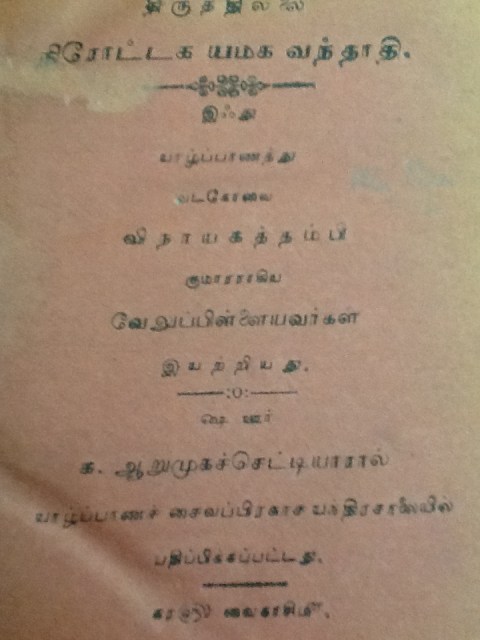 திருத்தில்லை
நிரோட்டக யமக வந்தாதி.
இஃது
யாழ்ப்பாணத்து
வடகோவை
விநாயகத்தம்பி
குமாரராகிய
வேலுப்பிள்ளையவர்கள்
இயற்றியது.
ஷை ஊர்
க. ஆறுமுகச்செட்டியாரால்
யாழ்ப்பாணச் சைவப்பிரகாச யந்திரசாலையில்
பதிப்பிக்கப்பட்டது.
கர௵ வைகாசி௴.